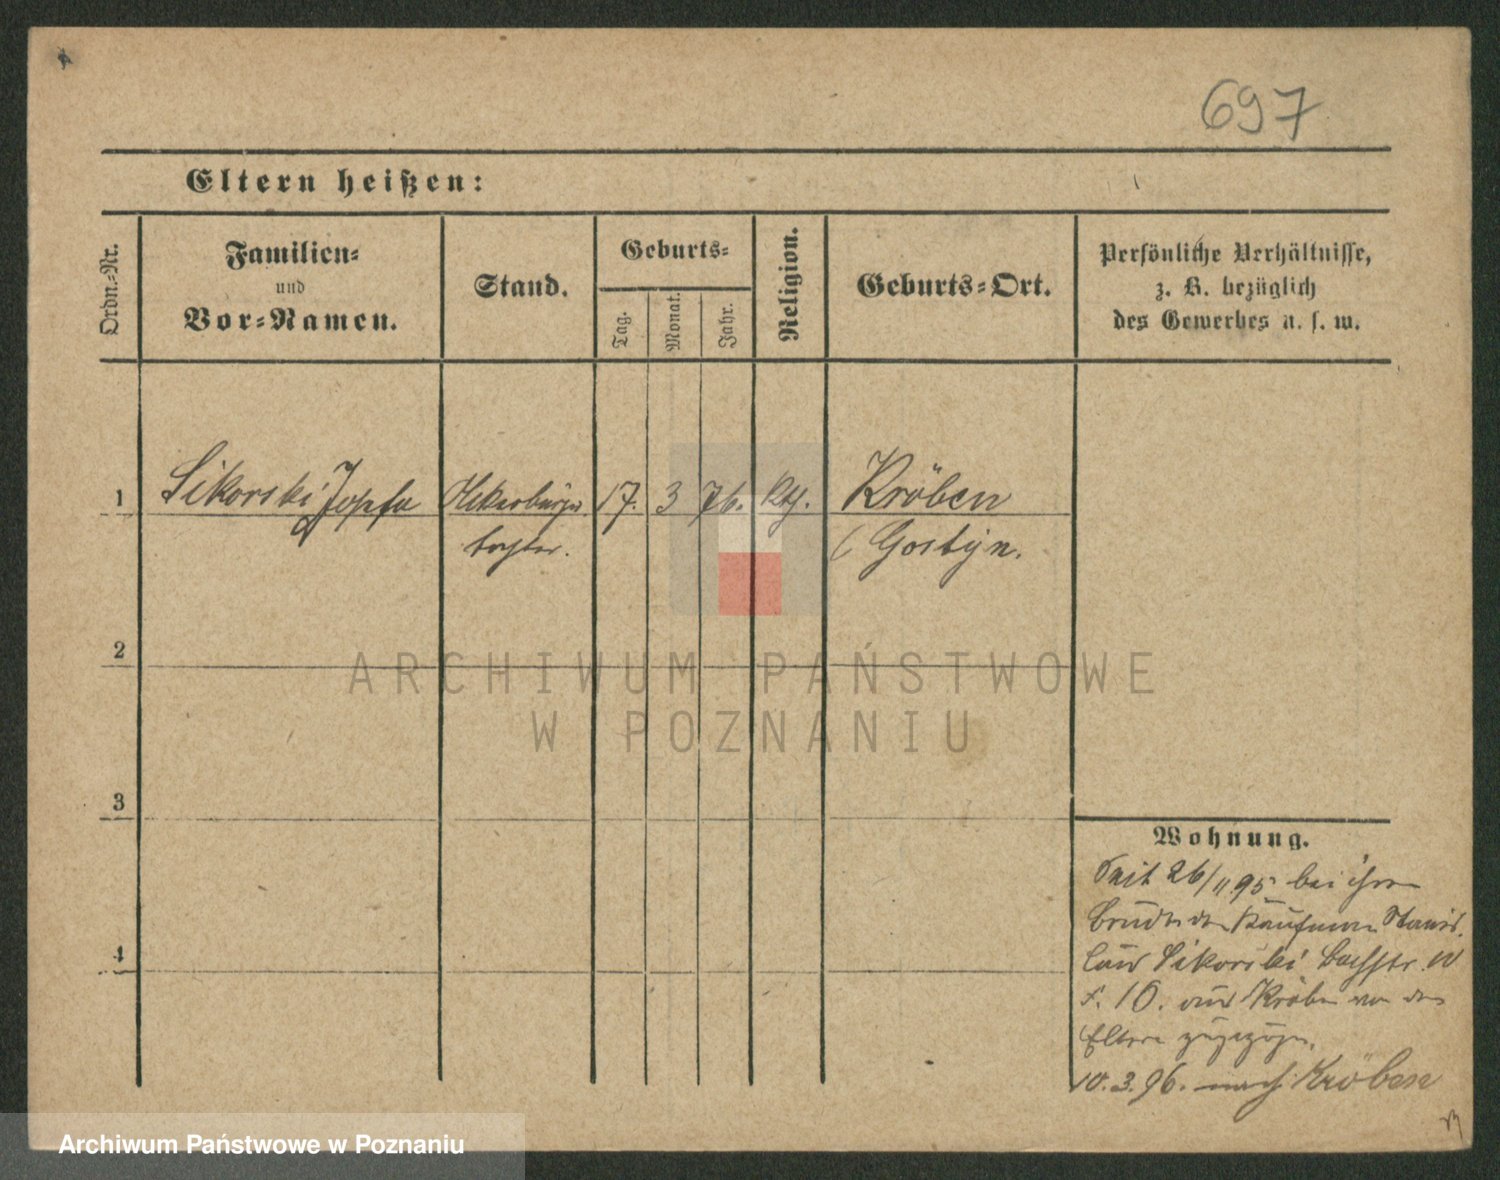 697
Eltern heißen:
Ordn.-Nr.
Familien-
und
Vor-Namen.
Stand.
Geburts-
Tag.
Monat.
Jahr.
Religion.
Geburts-Ort.
Persönliche Verhältnisse,
z. B. bezüglich
des Gewerbes u. s. w.
1 Sikorski Ackerbürger 17. 3 76. Kth. Kröben
tochter. ( Gostyn.
2
3
4
Wohnung.
Seit 26/11 95 bei ihrem
Bruder dem Kaufmann Stanis
laus Sikorski
10. aus Kröben von den
Eltern zugezogen.
10.3.96. nach Kröben
ARCHIWUM PAŃSTWOWE
W POZNANIU
Archiwum Państwowe w Poznaniu